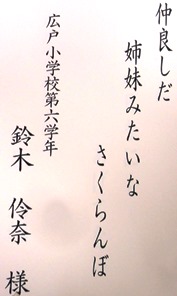 仲良しだ
姉妹みたいな
さくらんぼ
広戸小学校第六学年
鈴木 伶奈 様